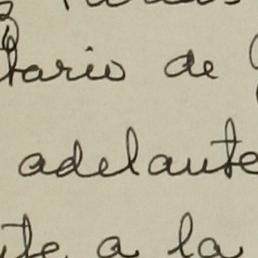 tario de
adelante
te a la